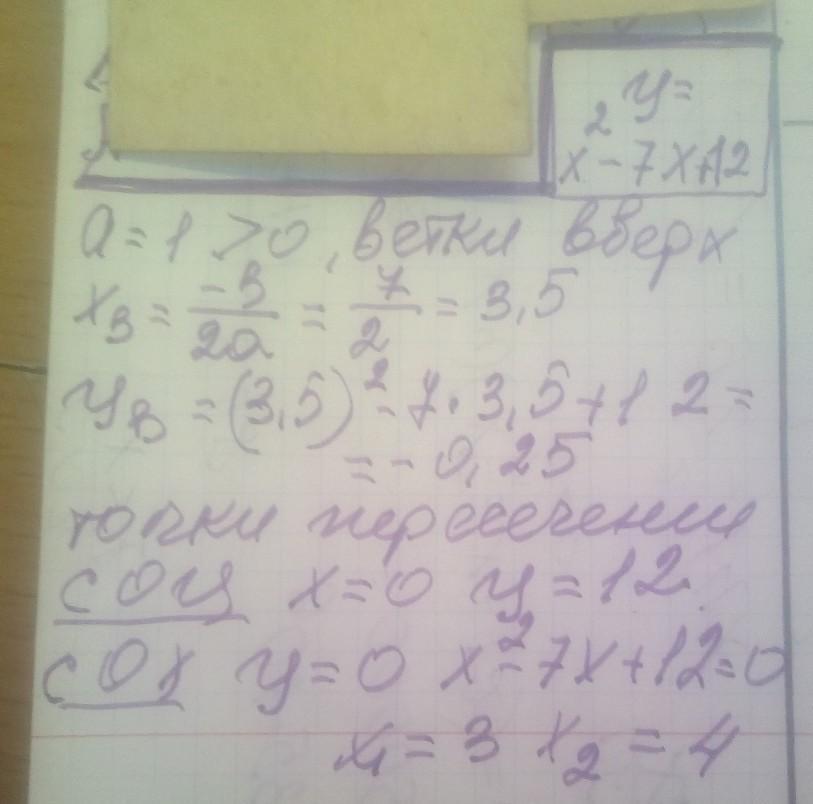 y =
x² - 7x + 12
a = 1 > 0, ветки вверх
x_в = -в/2a = 7/2 = 3,5
y_в = (3,5)² - 7 · 3,5 + 12 =
= -0,25
точки пересечении
с Оy x = 0 y = 12
с Ох y = 0 x² - 7x + 12 = 0
x₁ = 3 x₂ = 4